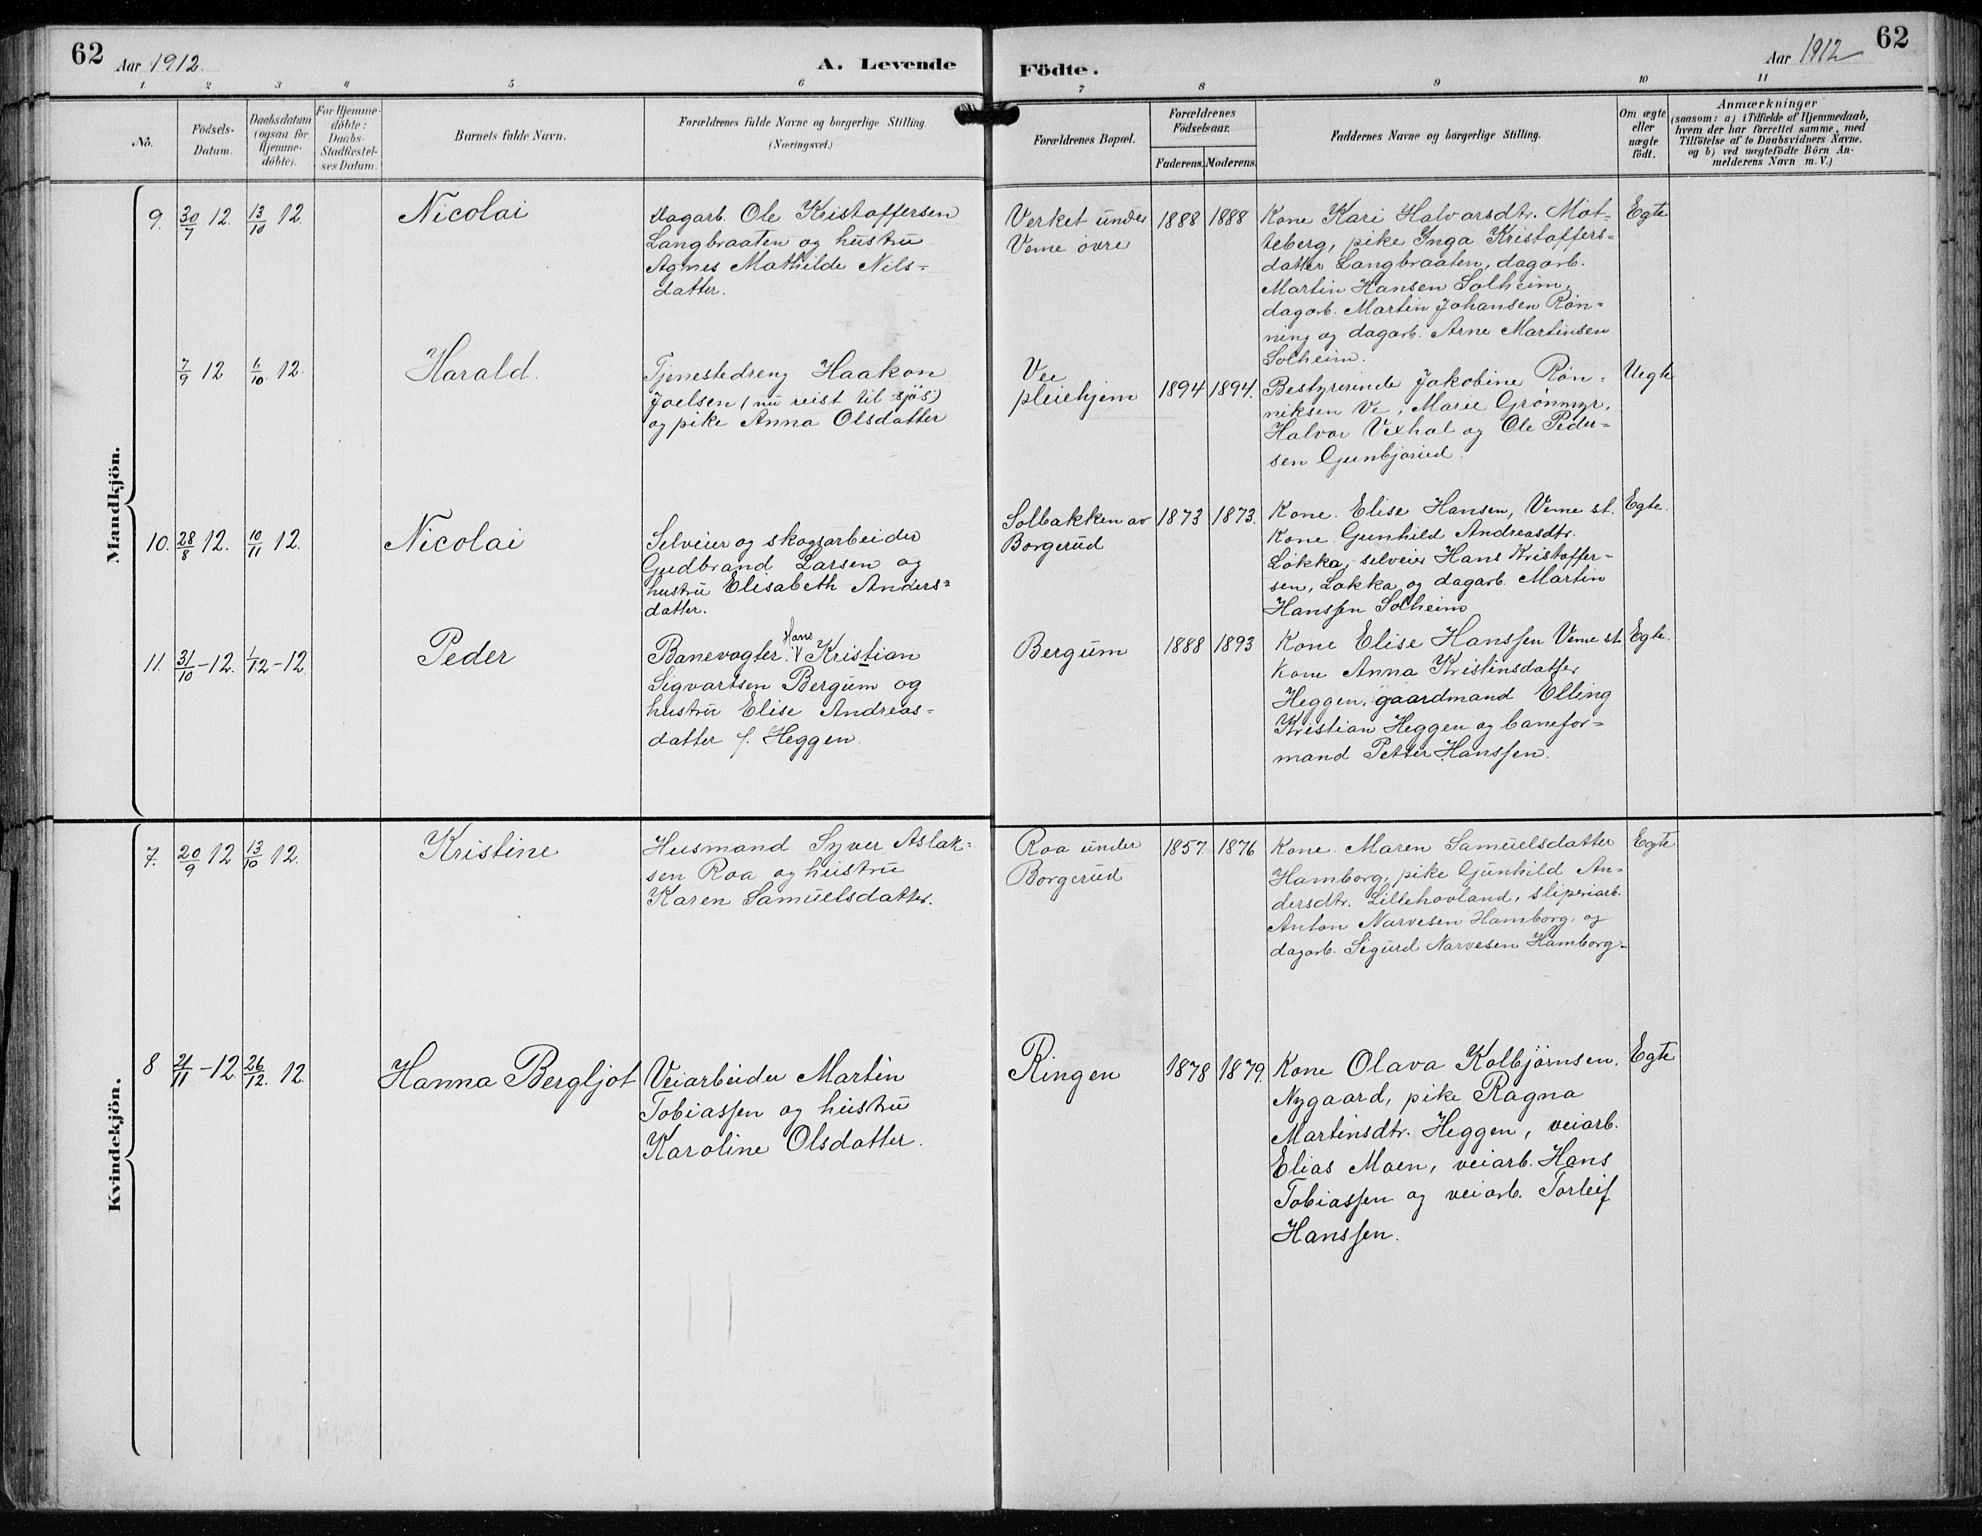 62
Aar 1912.
A. Levende
Födte.
Aar 1912
62
1 2 3 4 5 6 7 8 9 10 11
No.
Födsels-
Datum.
Daabsdatum
(ogsaa for
Hjemme-
döbte).
For Hjemme-
döbte:
Daabs-
Stadfæstel-
ses Datum.
Barnets fulde Navn.
Forældrenes fulde Navne og borgerlige Stilling.
(Næringsvei.)
Forældrenes Bopæl.
Forældrenes
Födselsaar.
Faderens. Moderens.
Faddernes Navne og borgerlige Stilling.
Om ægte
eller
uægte
født.
Anmærkninger
(saasom: a) i Tilfælde af Hjemmedaab,
hvem der har forrettet samme, med
Tilföielse af to Daabsvidners Navne,
og b) ved uægtefödte Börn An-
melderens Navn m. V.)
Mandkjön.
9. 30/7 12. 13/10 12. Nicolai
Dagarb. Ole Kristoffersen
Langbraaten og hustru
Agnes Mathilde Nils-
datter.
Verket under
Veme övre
1888 1888
Kone Kari Halvorsdtr. Mot-
teberg, pike Inga Kristoffers-
datter Langbraaten, dagarb.
Martin Hansen Solheim,
dagarb. Martin Johansen Røn-
ning og dagarb. Arne Martinsen
Solheim.
Egte
7/9 12 6/10 12. Harald.
Tjenestedreng Haakon
Joelsen (nu reist til sjøs)
og pike Anna Olsdatter
Vee
pleiehjem
1894 1894.
Bestyrerinde Jakobine Røn-
niksen Ve, Marie Grønmyr,
Halvor Vexhal og Ole Peder-
sen Gunbjørud.
Uegte
10. 28/8 12. 10/11 12. Nicolai
Selveier og skogsarbeider
Gudbrand Larsen og
hustru Elisabeth Anders-
datter.
Solbakken av
Borgerud
1873 1873.
Kone Elise Hansen, Veme st.
Kone Gunhild Andreasdtr.
Løkka, selveier Hans Kristoffer-
sen, Løkka og dagarb. Martin
Hanssen Solheim
Egte.
11. 31/10 - 12. 1/12 - 12 Peder
Hans
Banevogter Kristian
Sigvartsen Bergum og
hustru Elise Andreas-
datter f. Heggen.
Bergum
1888 1893
Kone Elise Hanssen Veme st.
Kone Anna Kristinsdatter
Heggen, gaardmand Elling
Kristian Heggen og banefor-
mand Petter Hanssen.
Egte.
Kvindekjön.
7. 20/9 12 13/10 12. Kristine
Husmand Syver Aslak-
sen Roa og hustru
Karen Samuelsdatter.
Roa under
Borgerud
1857. 1876
Kone Maren Samuelsdatter
Hamborg, pike Gunhild An-
dersdtr. Lillehovland, sliperiarb.
Anton Narvesen Hamborg og
dagarb. Sigurd Narvesen Hamborg.
Egte
8 21/11 - 12. 26/12. 12. Hanna Bergljot
Veiarbeider Martin
Tobiassen og hustru
Karoline Olsdatter.
Ringen
1878 1879.
Kone Olava Kolbjørnsen.
Nygaard, pike Ragna
Martinsdtr. Heggen, veiarb.
Elias Moen, veiarb. Hans
Tobiassen og veiarb. Torleif
Hanssen.
Egte